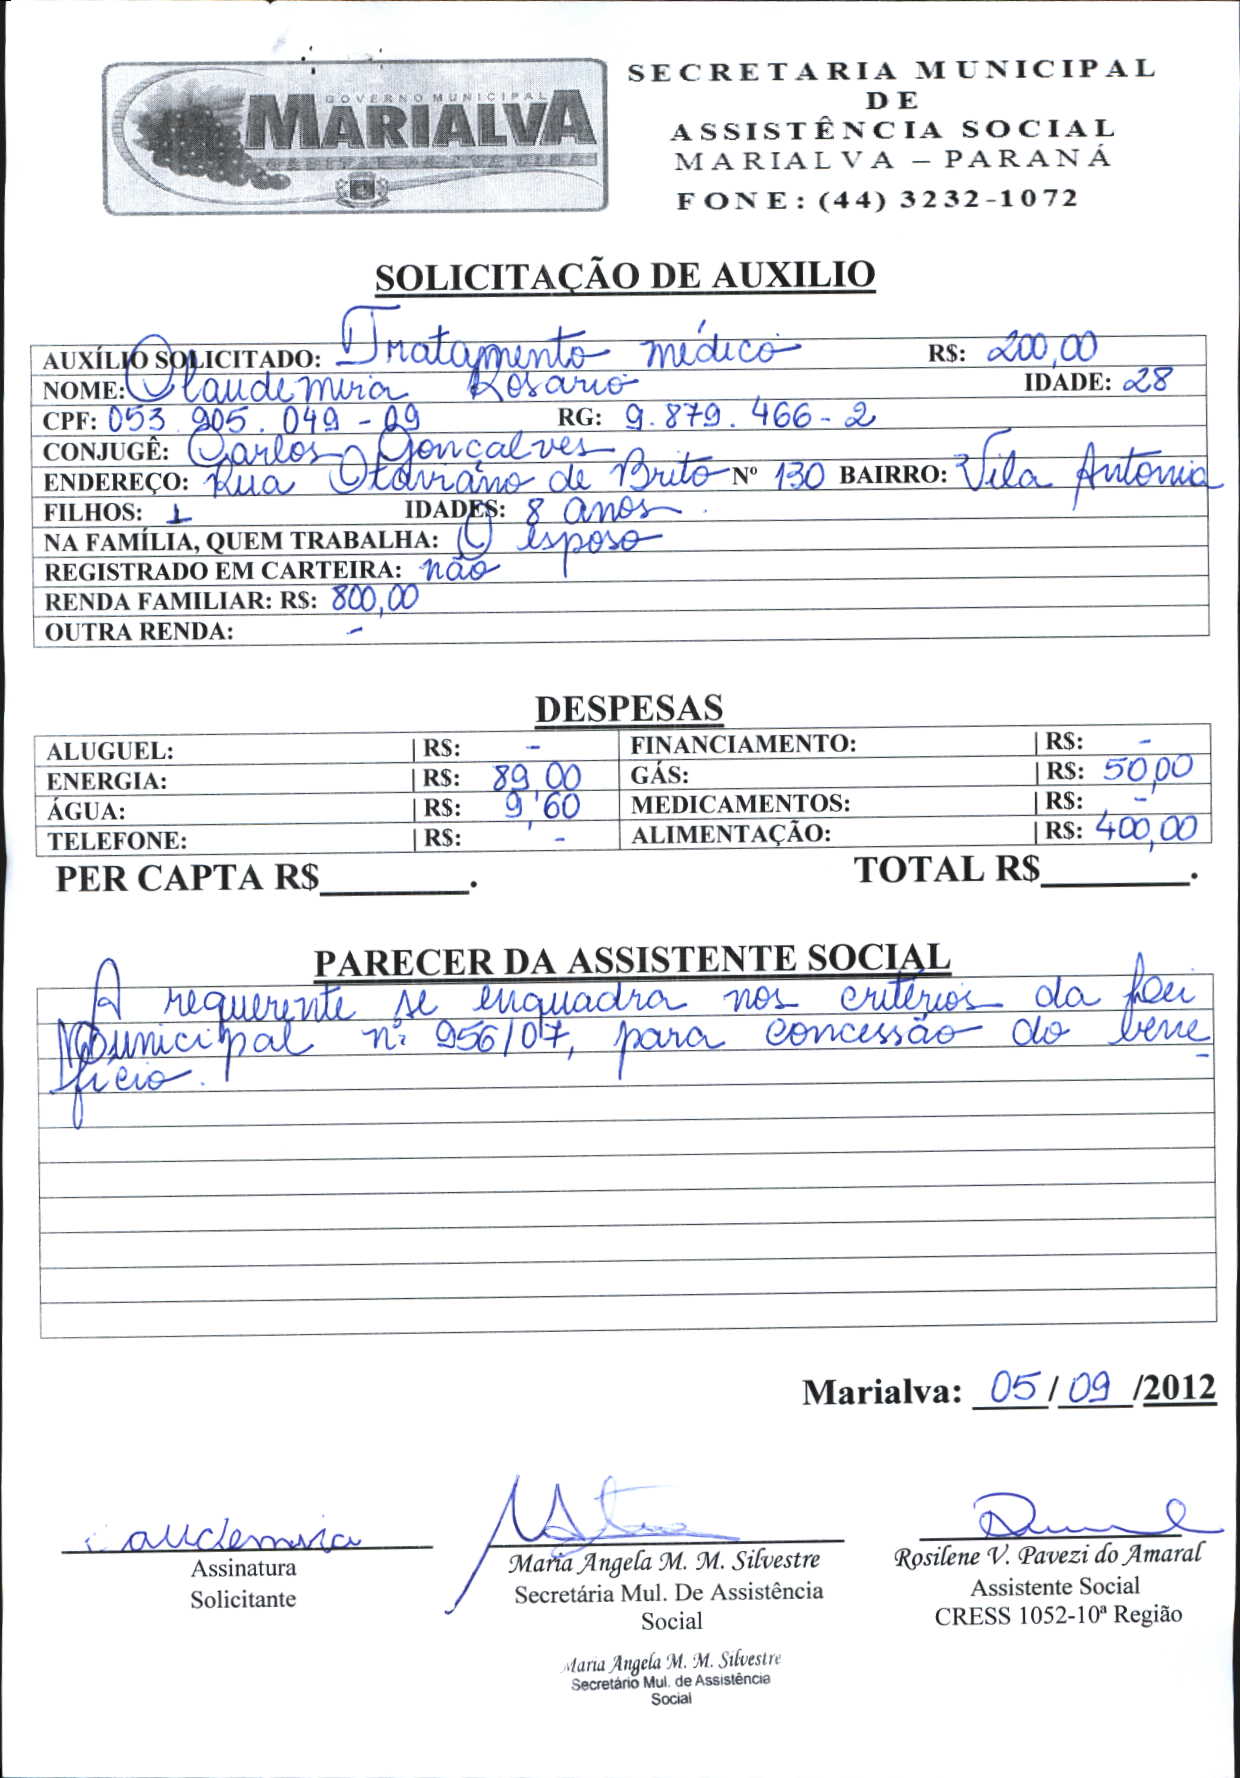 GOVERNO MUNICIPAL
MARIALVA
CAPITAL DA UVA FINA
SECRETARIA MUNICIPAL
DE
ASSISTÊNCIA SOCIAL
MARIALVA – PARANÁ
FONE: (44) 3232-1072
SOLICITAÇÃO DE AUXILIO
AUXÍLIO SOLICITADO: Tratamento médico R$: 200,00
NOME: Claudemira Rosario IDADE: 28
CPF: 053.905.049-09 RG: 9.879.466-2
CONJUGÊ: Carlos Gonçalves
ENDEREÇO: Rua Otaviano de Brito Nº 130 BAIRRO: Vila Antonia
FILHOS: 1 IDADES: 8 anos.
NA FAMÍLIA, QUEM TRABALHA: O esposo
REGISTRADO EM CARTEIRA: não
RENDA FAMILIAR: R$: 800,00
OUTRA RENDA: -
DESPESAS
ALUGUEL: | R$: - FINANCIAMENTO: | R$: -
ENERGIA: | R$: 89,00 GÁS: | R$: 50,00
ÁGUA: | R$: 9,60 MEDICAMENTOS: | R$: -
TELEFONE: | R$: - ALIMENTAÇÃO: | R$: 400,00
PER CAPTA R$________. TOTAL R$________.
PARECER DA ASSISTENTE SOCIAL
A requerente se enquadra nos critérios da Lei
Municipal nº 956/07, para concessão do bene-
fício.
Marialva: 05/09/2012
Claudemira
Assinatura
Solicitante
Maria Angela M. M. Silvestre
Secretária Mul. De Assistência
Social
Maria Angela M. M. Silvestre
Secretário Mul. de Assistência
Social
Rosilene V. Pavezi do Amaral
Assistente Social
CRESS 1052-10ª Região